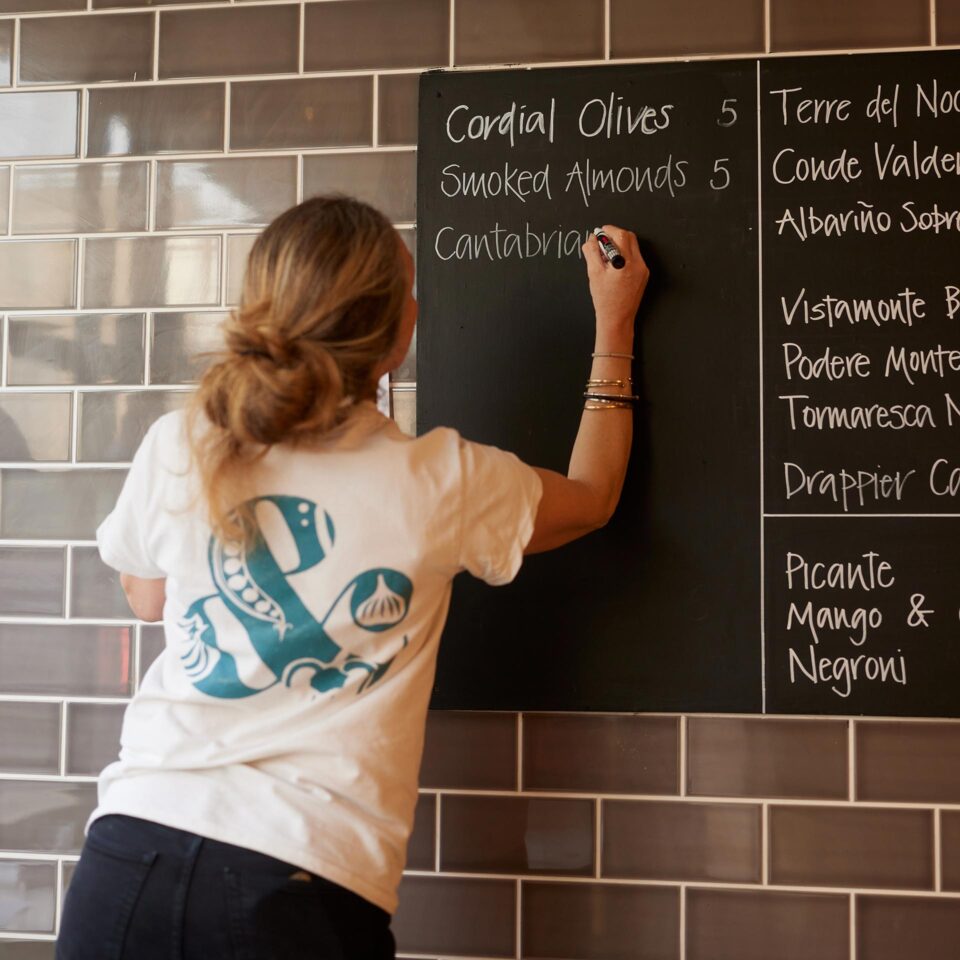 Cordial Olives 5
Smoked Almonds 5
Cantabria
Terre del
Conde
Albariño
Vistamonte
Podere
Tormaresca
Drappier
Picante
Mango &
Negroni
&